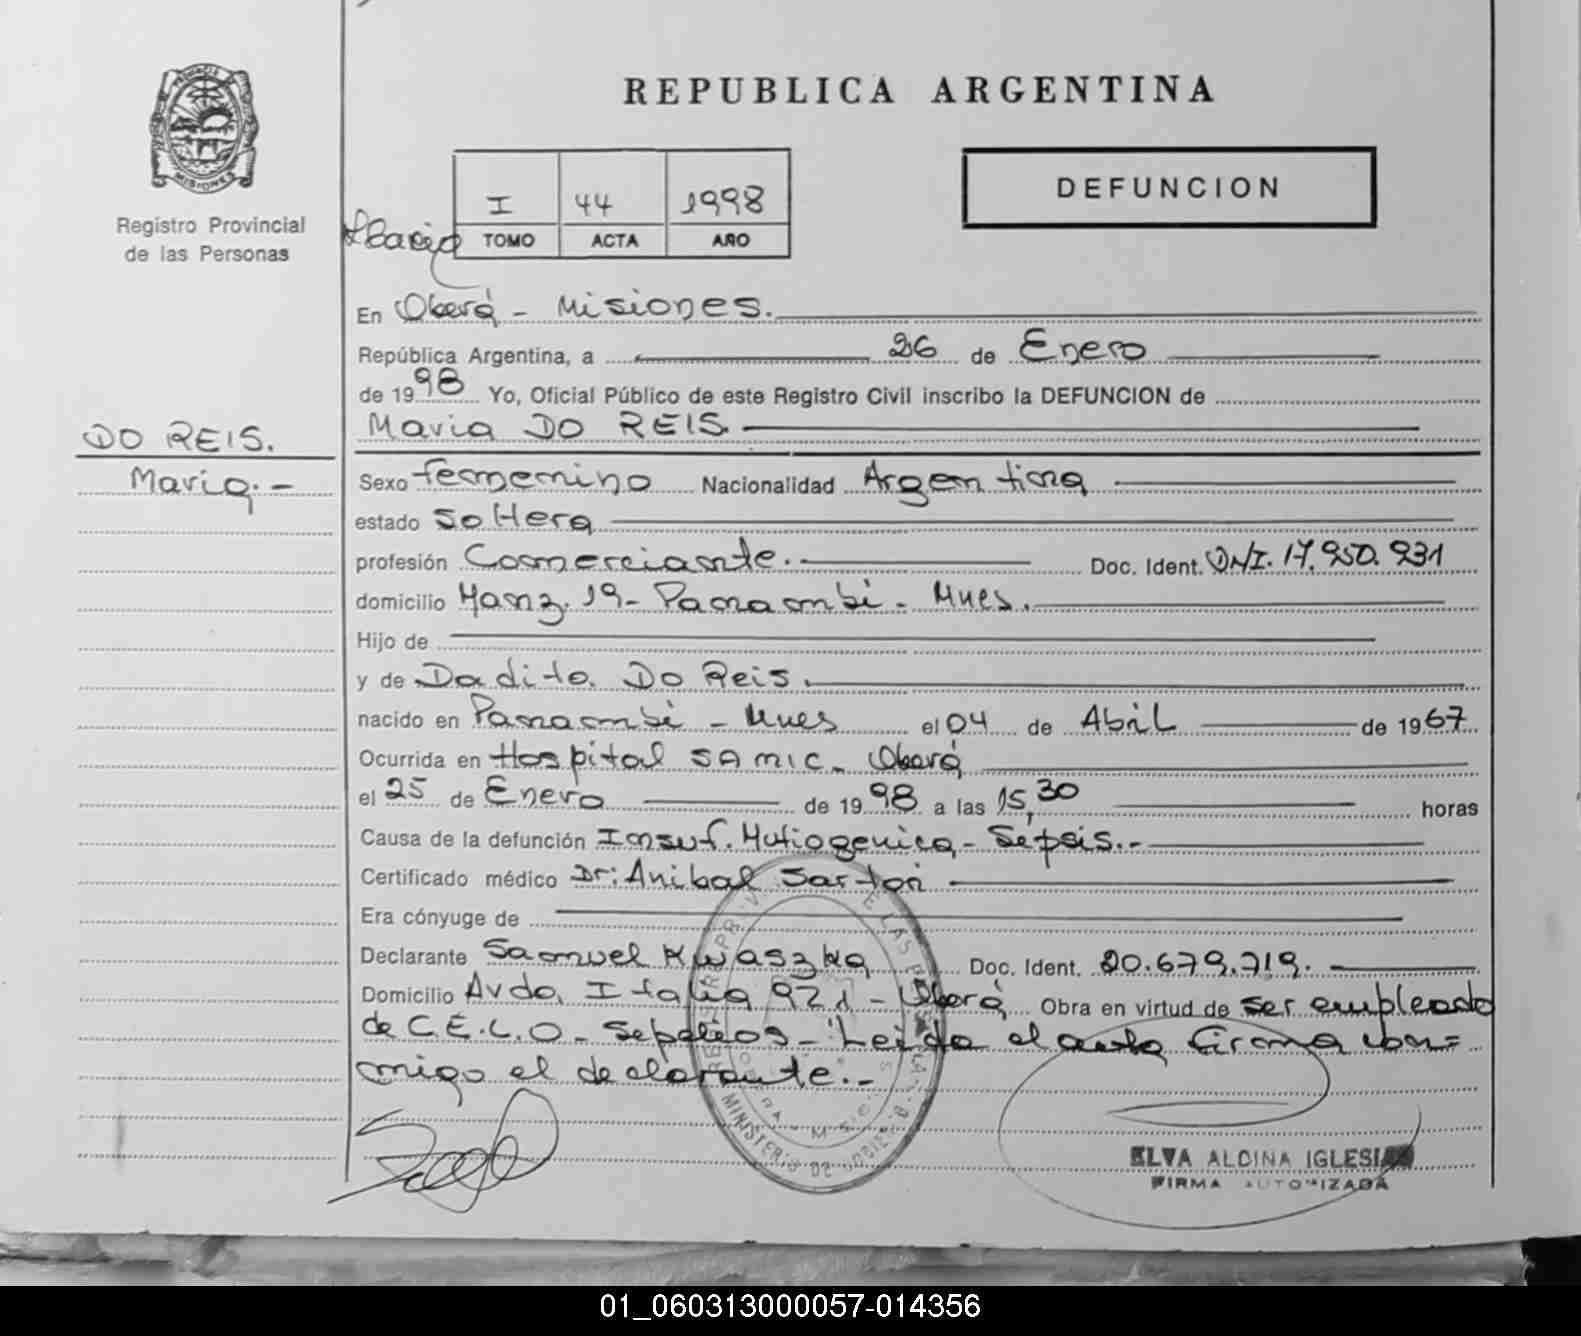 REPUBLICA ARGENTINA
PROVINCIA DE
MISIONES
Registro Provincial
de las Personas
I 44 1998
TOMO ACTA AÑO
DEFUNCION
En Oberá - Misiones.
República Argentina, a 26 de Enero
de 1998 Yo, Oficial Público de este Registro Civil inscribo la DEFUNCION de
Maria DO REIS.
DO REIS.
Maria.-
Sexo femenino Nacionalidad Argentina
estado soltera
profesión Comerciante. Doc. Ident. DNI. 17.950.931
domicilio Manz. 19 - Panambi - Mnes.
Hijo de
y de Dadito Do Reis.
nacido en Panambi - Mnes el 04 de Abril de 1967
Ocurrida en Hospital SAMIC - Oberá
el 25 de Enero de 1998 a las 15,30 horas
Causa de la defunción Insuf. - Sepsis.-
Certificado médico Dr: Anibal Sartori
Era cónyuge de
Declarante Samuel Kwaszka Doc. Ident. 20.679.719.
Domicilio Avda. Italia 921 - Oberá Obra en virtud de ser empleado
de C.E.L.O - Sepelios - Leida el acta firma con=
migo el declarante.-
MINISTERIO DE GOBIERNO
ELVA ALCINA IGLESIAS
FIRMA AUTORIZADA
01_060313000057-014356